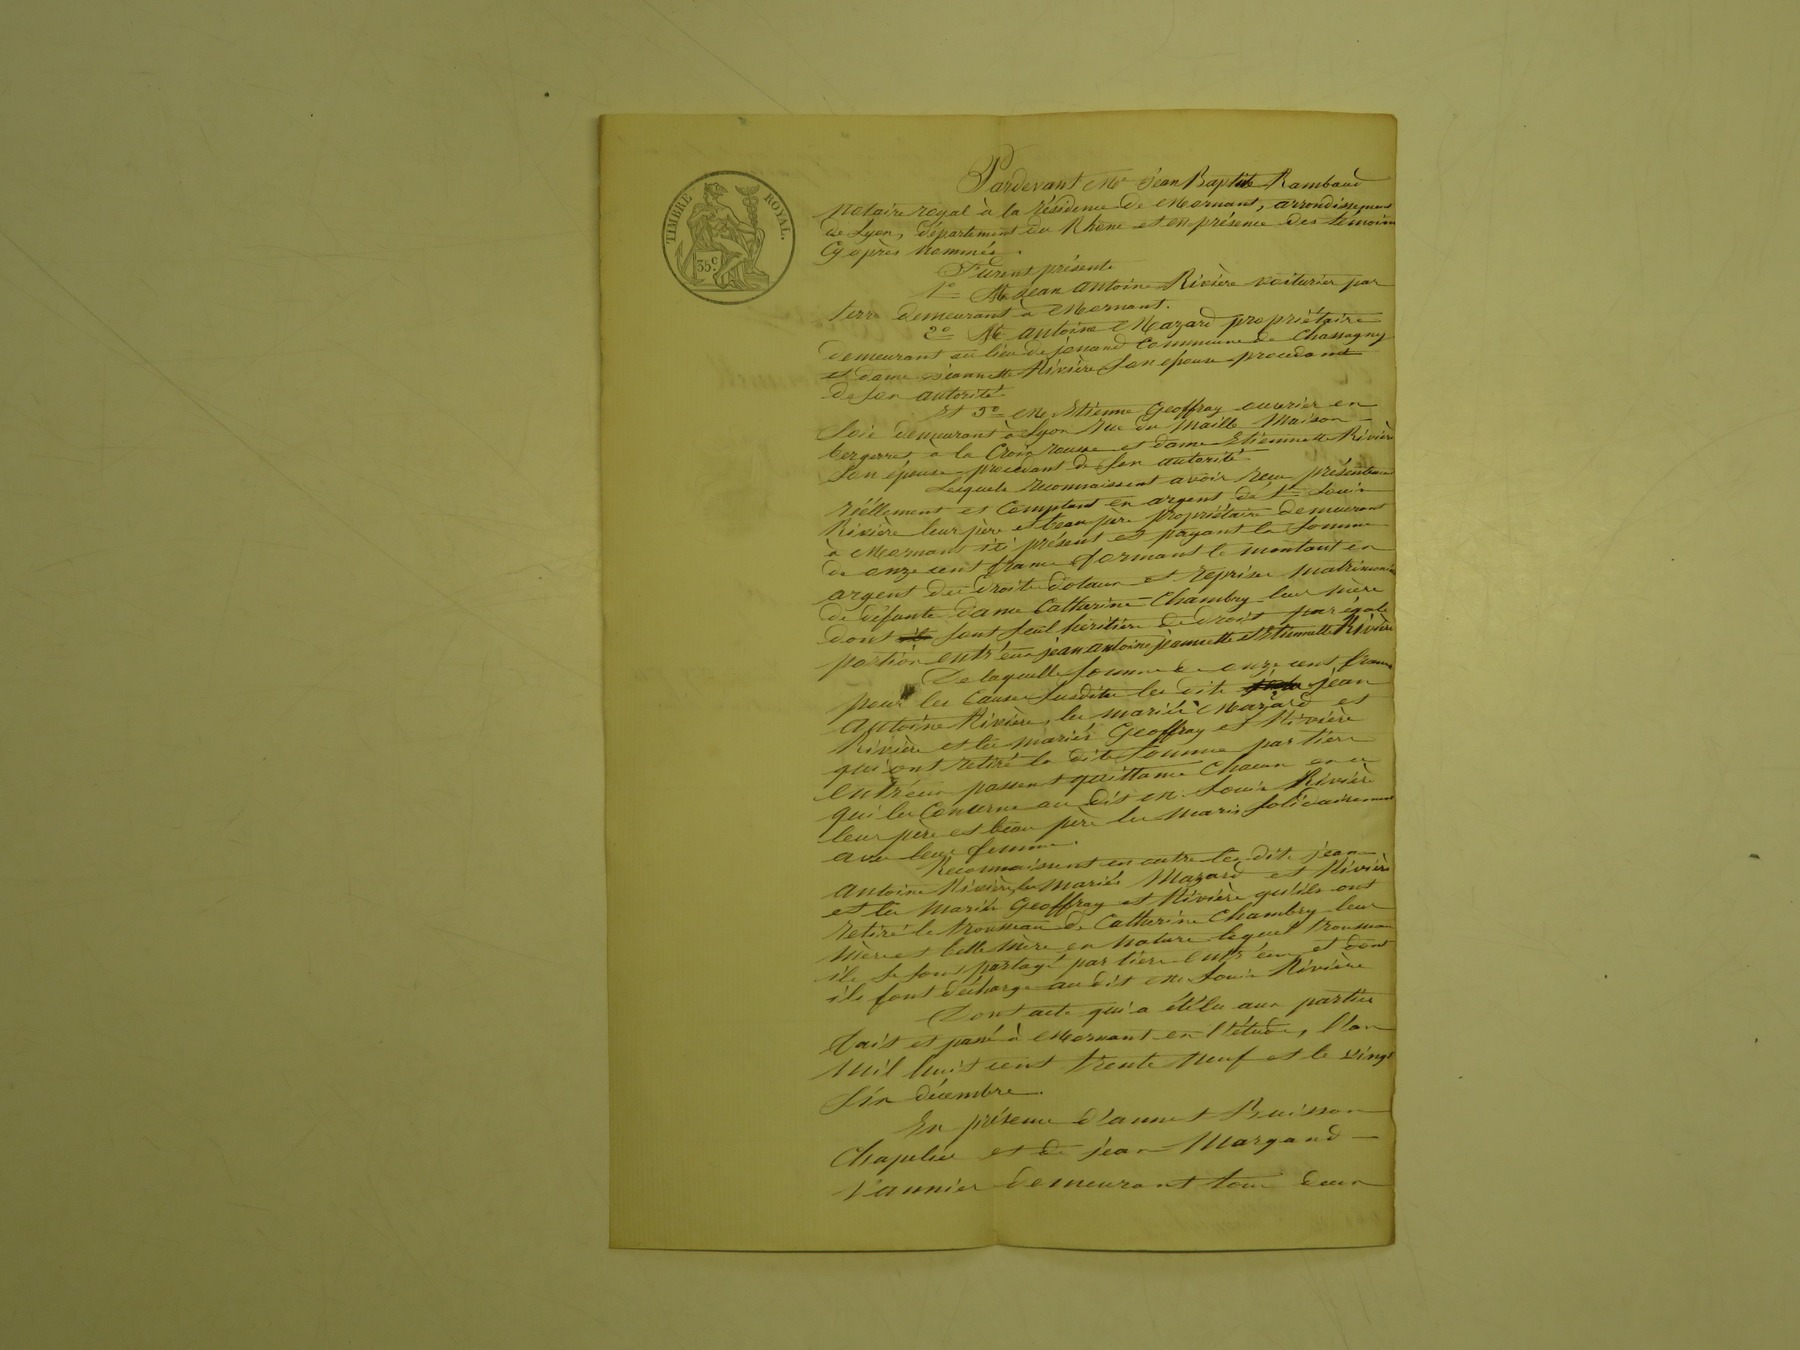 TIMBRE ROYAL.
35c.
Pardevant Me Jean Baptiste Rambaud
notaire royal à la résidence de Mornant, arrondissement
de Lyon, département du Rhône et en présence des témoins
cy après nommés.
Furent présents
1o M. Jean Antoine Rivière voiturier par
terre demeurant à Mornant.
2o M. Antoine Mazard propriétaire
demeurant au lieu de jonand commune de Chassagny
et dame jeannette Rivière son épouse procédant
de son autorité
Et 3o M. Etienne Geoffray ouvrier en
soie demeurant à Lyon rue du Maille Maison
à la Croix rousse et dame Etiennette Rivière
son épouse procédant de son autorité
Lesquels reconnaissent avoir reçu présentement
réellement et comptant en argent de Sr Louis
Rivière leur père et beau père propriétaire demeurant
à Mornant ici présent et payant la somme
de onze cent francs formant le montant en
argent des droits dotaux et reprises matrimoniales
de défunte dame Catherine Chambry leur mère
dont ils sont seul héritiers de droit par égale
portion entr'eux jean antoine jeannette et Etiennette Rivière
De laquelle somme de onze cent francs
pour les causes susdites les dits jean
Antoine Rivière, les mariés Mazard et
Rivière et les mariés Geoffray et Rivière
qui ont retiré la dite somme par tiers
entr'eux passent quittance chacun en ce
qui les concerne au dit M. Louis Rivière
leur père et beau père les maris solidairement
avec leurs femmes.
Reconnaissent en outre les dits jean
Antoine Rivière, les mariés Mazard et Rivière
et les mariés Geoffray et Rivière qu'ils ont
retiré le trousseau de Catherine Chambry leur
mère et belle mère en nature lequel trousseau
ils se sont partagé par tiers entr'eux et dont
ils font décharge au dit M. Louis Rivière
Dont acte qui a été lu aux parties
fait et passé à Mornant en l'étude, l'an
mil huit cent trente neuf et le vingt
six décembre.
En présence d'annet Buisson
Chapelier et de jean Margand
Vannier demeurant tous deux